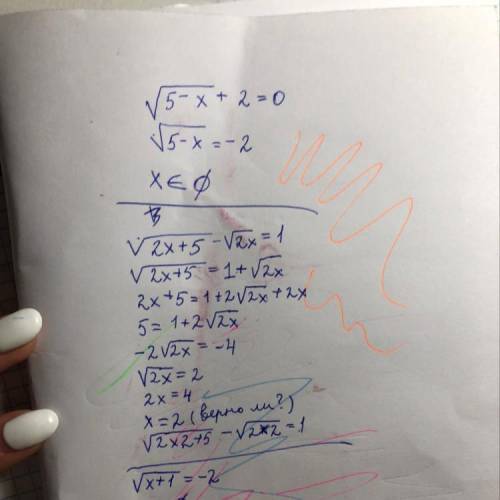 √(5-x) + 2 = 0
√(5-x) = -2
x ∈ ∅
√(2x+5) - √(2x) = 1
√(2x+5) = 1 + √(2x)
2x + 5 = 1 + 2√(2x) + 2x
5 = 1 + 2√(2x)
-2√(2x) = -4
√(2x) = 2
2x = 4
x = 2 (верно ли?)
√(2×2+5) - √(2×2) = 1
√(x+1) = -2